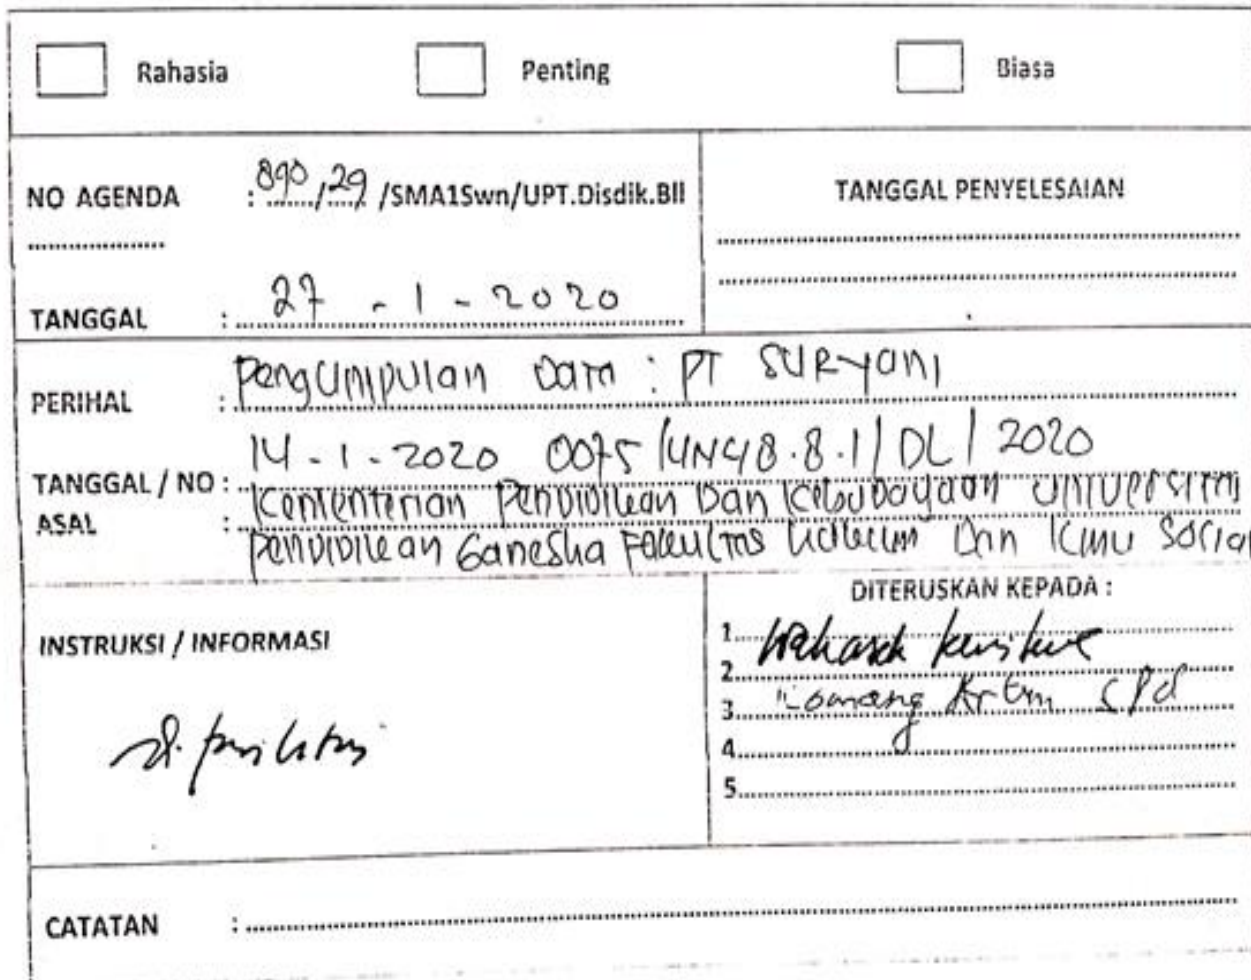 Rahasia Penting Biasa
NO AGENDA : 890/29 /SMA1Swn/UPT.Disdik.Bll
TANGGAL PENYELESAIAN
TANGGAL : 27 - 1 - 2020
PERIHAL : Pengumpulan Data : PT SURYANI
TANGGAL / NO : 14 - 1 - 2020 0075/UN48.8.1/DL/2020
ASAL : Kementerian Pendidikan Dan Kebudayaan Universitas
Pendidikan Ganesha Fakultas Hukum Dan Ilmu Sosial
INSTRUKSI / INFORMASI
DITERUSKAN KEPADA :
1. Wakasek
2.
3. Komang SPd
4.
5.
CATATAN :